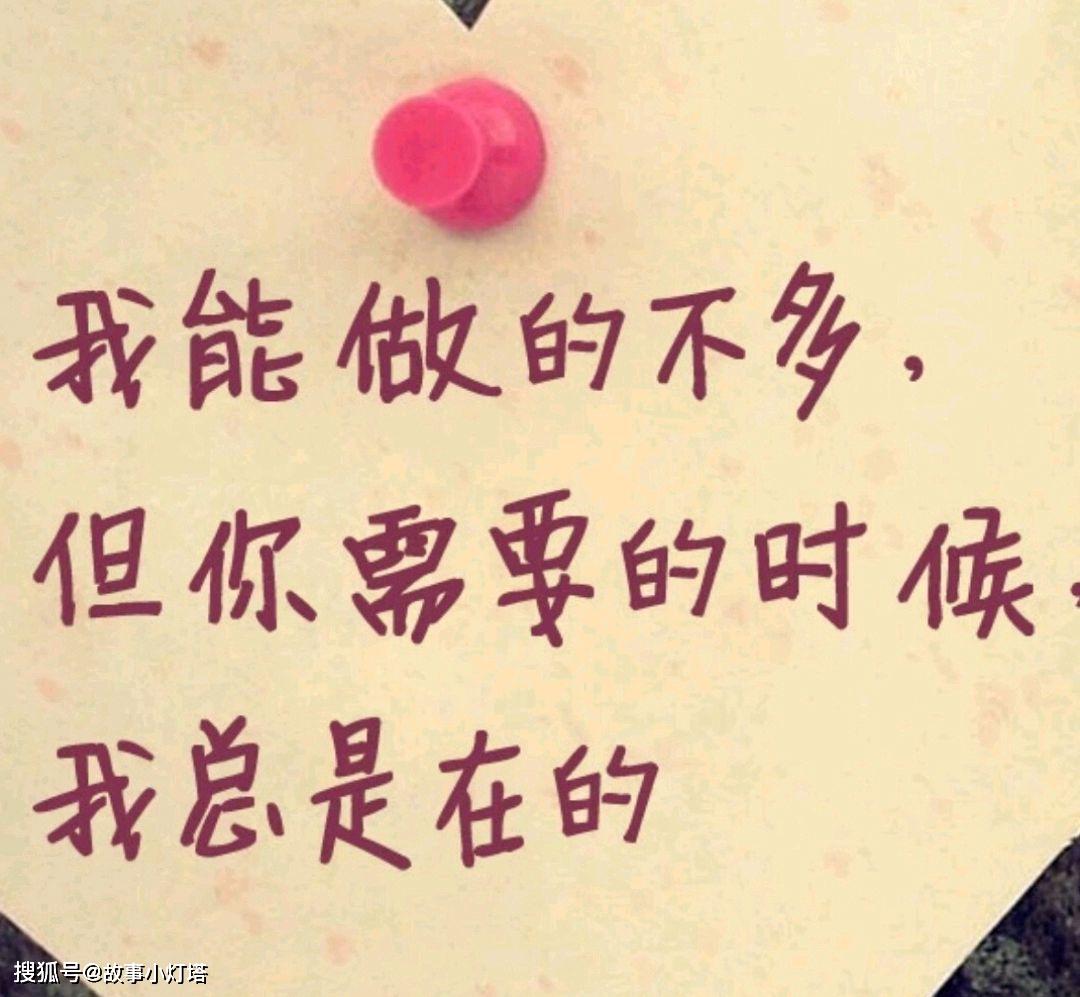 我能做的不多，
但你需要的时候，
我总是在的
搜狐号@故事小灯塔